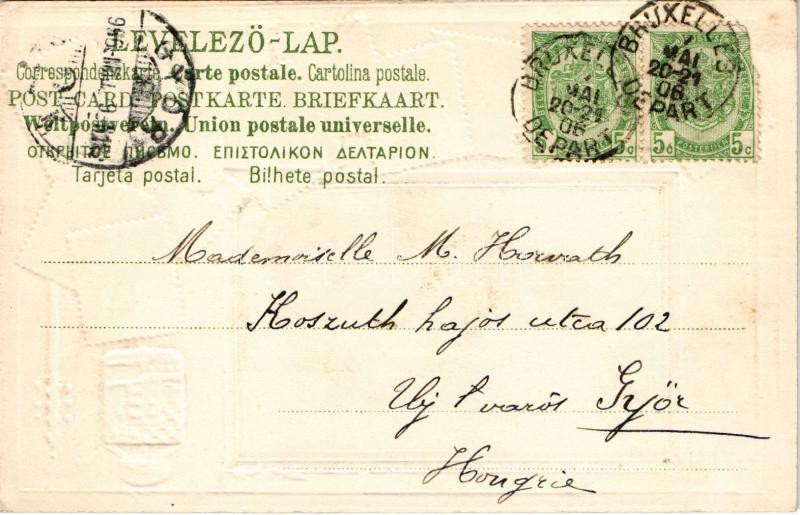 LEVELEZŐ-LAP.
Correspondenzkarte. Carte postale. Cartolina postale.
POST CARD. POSTKARTE. BRIEFKAART.
Weltpostverein. Union postale universelle.
ОТКРЫТОЕ ПИСЬМО. ΕΠΙΣΤΟΛΙΚΟΝ ΔΕΛΤΑΡΙΟΝ.
Tarjeta postal. Bilhete postal.
BRUXELLES
7
MAI
20-21
06
DEPART
BRUXELLES
7
MAI
20-21
06
DEPART
5c
5c POSTERIJEN 5c
Mademoiselle M. Horvath
Koszuth hajós utca 102
Uj varòs Győr
Hongrie